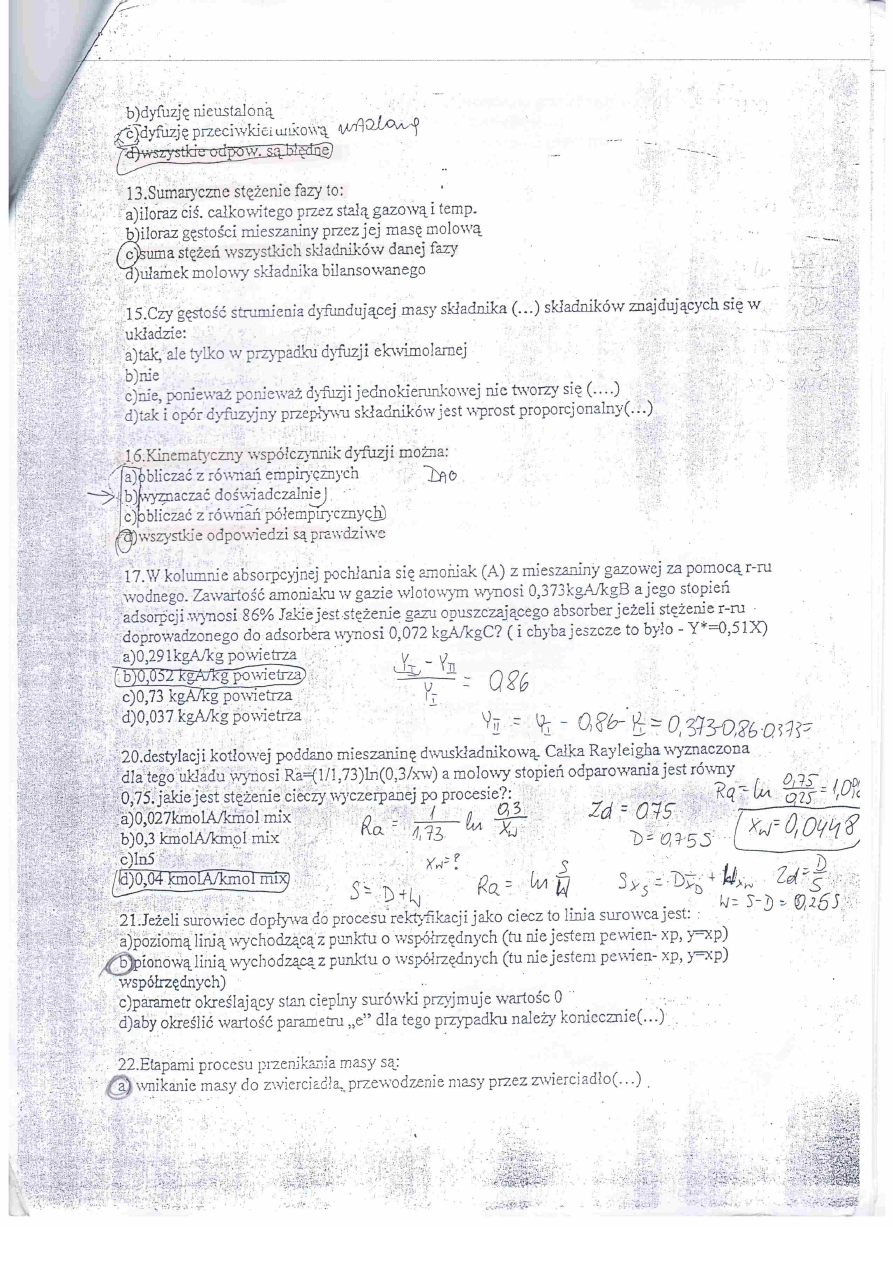 b)dyfuzję nieustaloną
c)dyfuzję przeciwkierunkową ustaloną
d)wszystkie odpow. są błędne
13.Sumaryczne stężenie fazy to:
a)iloraz ciś. całkowitego przez stałą gazową i temp.
b)iloraz gęstości mieszaniny przez jej masę molową
c)suma stężeń wszystkich składników danej fazy
d)ułamek molowy składnika bilansowanego
15.Czy gęstość strumienia dyfundującej masy składnika (...) składników znajdujących się w
układzie:
a)tak, ale tylko w przypadku dyfuzji ekwimolarnej
b)nie
c)nie, ponieważ ponieważ dyfuzji jednokierunkowej nie tworzy się (....)
d)tak i opór dyfuzyjny przepływu składników jest wprost proporcjonalny(...)
16.Kinematyczny współczynnik dyfuzji można:
a)obliczać z równań empirycznych
b)wyznaczać doświadczalnie
c)obliczać z równań półempirycznych
d)wszystkie odpowiedzi są prawdziwe
17.W kolumnie absorpcyjnej pochłania się amoniak (A) z mieszaniny gazowej za pomocą r-ru
wodnego. Zawartość amoniaku w gazie wlotowym wynosi 0,373kgA/kgB a jego stopień
adsorpcji wynosi 86% Jakie jest stężenie gazu opuszczającego absorber jeżeli stężenie r-ru
doprowadzonego do adsorbera wynosi 0,072 kgA/kgC? ( i chyba jeszcze to było - Y*=0,51X)
a)0,291kgA/kg powietrza
b)0,052 kgA/kg powietrza
c)0,73 kgA/kg powietrza
d)0,037 kgA/kg powietrza
Y_I - Y_II / Y_I = 0,86
Y_II = Y_I - 0,86·Y_I = 0,373-0,86·0,373=
20.destylacji kotłowej poddano mieszaninę dwuskładnikową. Całka Rayleigha wyznaczona
dla tego układu wynosi Ra=(1/1,73)ln(0,3/xw) a molowy stopień odparowania jest równy
0,75. jakie jest stężenie cieczy wyczerpanej po procesie?:
a)0,027kmolA/kmol mix
b)0,3 kmolA/kmol mix
c)ln5
d)0,04 kmolA/kmol mix
Ra = 1/1,73 ln 0,3/xw
Zd = 0,75
D = 0,75S
xw=0,0448
xw=?
S = D+W
Ra = ln S/W
Zd = D/S
21.Jeżeli surowiec dopływa do procesu rektyfikacji jako ciecz to linia surowca jest:
a)poziomą linią wychodzącą z punktu o współrzędnych (tu nie jestem pewien- xp, y=xp)
b)pionową linią wychodzącą z punktu o współrzędnych (tu nie jestem pewien- xp, y=xp)
współrzędnych)
c)parametr określający stan cieplny surówki przyjmuje wartośc 0
d)aby określić wartość parametru „e” dla tego przypadku należy koniecznie(...)
22.Etapami procesu przenikania masy są:
a) wnikanie masy do zwierciadła, przewodzenie masy przez zwierciadło(...)